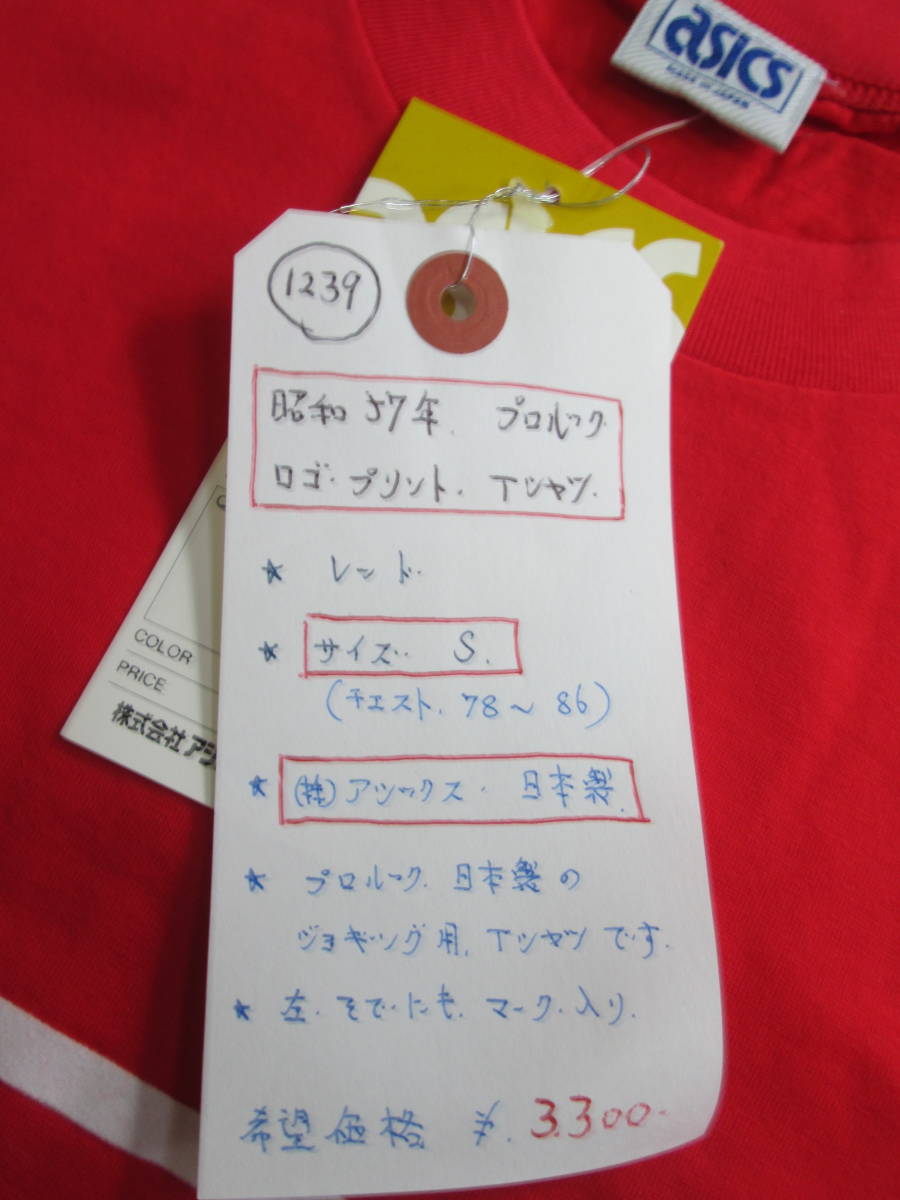 asics
MADE IN JAPAN
1239
昭和57年. プロルック
ロゴ.プリント. Tシャツ.
★ レッド.
★ サイズ. S.
(チェスト. 78〜86)
★ (株)アシックス. 日本製.
★ プロルック. 日本製の
ジョギング用. Tシャツです.
★ 左.そでにも. マーク.入り.
希望価格 ¥. 3.300-
COLOR
PRICE
株式会社 アシ